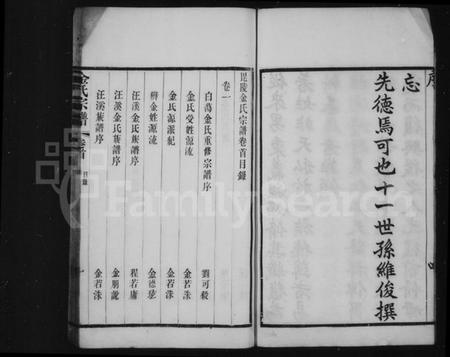 序
忘
先德焉可也十一世孫維俊撰
毘陵金氏宗譜卷首目錄
卷一
白蕩金氏重修宗譜序 劉可毅
金氏受姓源流 金若洙
金氏源派紀 金若洙
辨金姓源流 金德
汪溪金氏族譜序 程若庸
汪溪金氏族譜序 金朋說
汪溪族譜序 金若洙
金氏宗譜 卷首 目錄 一
FamilySearch